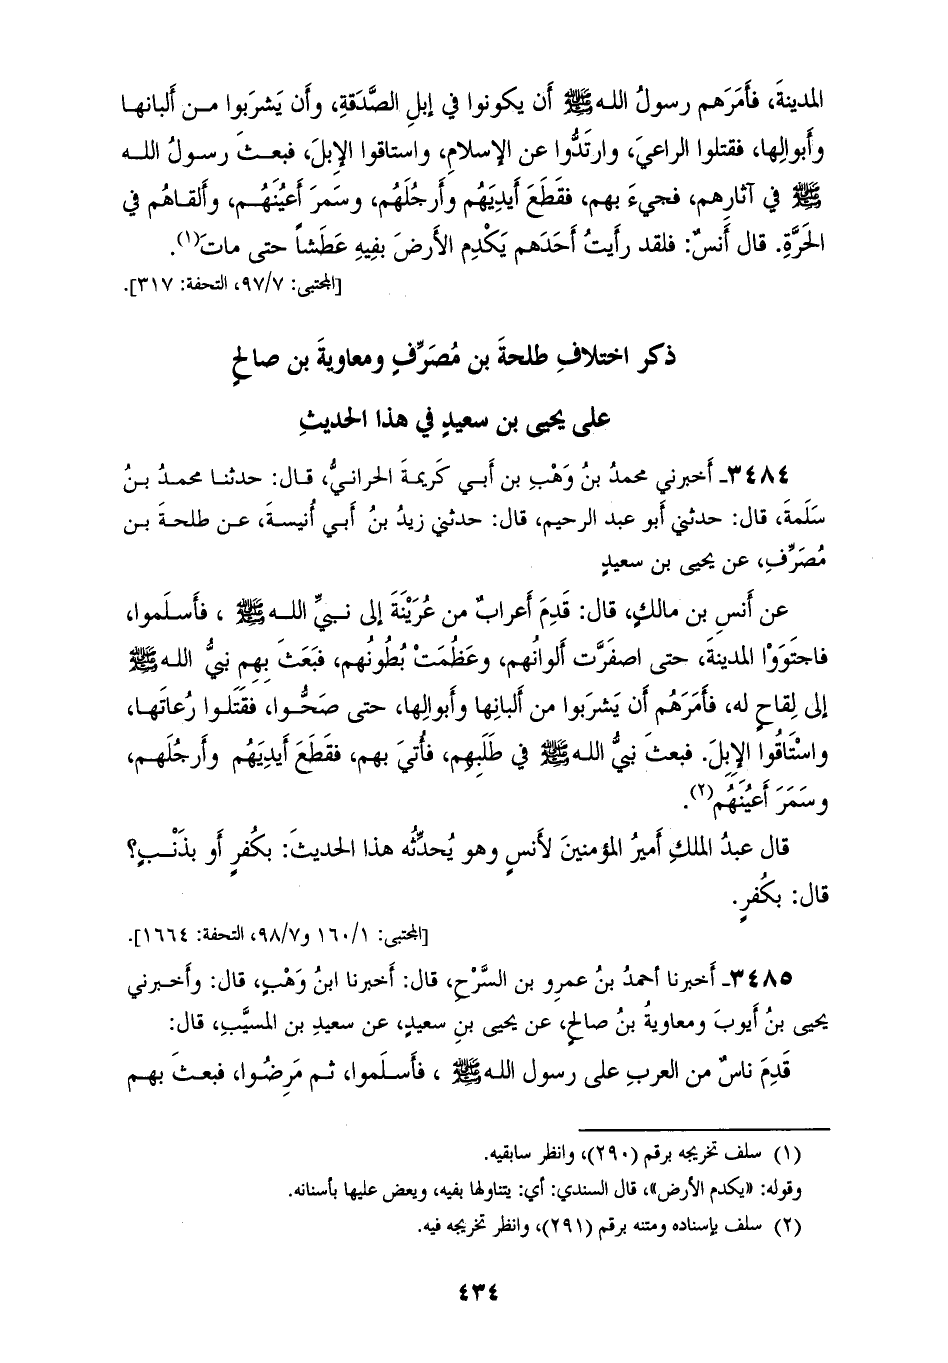 المدينةَ، فأَمَرَهم رسولُ اللهﷺ أَن يكونوا في إبلِ الصَّدَقةِ، وأَن يَشرَبوا مـن أَلبانهـا
وأَبوالِها، فقتلوا الراعيَ، وارتَدُّوا عن الإسلامِ، واستاقوا الإبلَ، فبعـثَ رسـولُ اللـه
ﷺ في آثارِهم، فجيءَ بهم، فقَطَعَ أَيديَهُم وأَرجُلَهُم، وسَمَرَ أَعيُنَهُـم، وأَلقـاهُم في
الحَرَّةِ. قال أَنسٌ: فلقد رأَيتُ أَحدَهم يَكْدِم الأَرضَ بفِيهِ عَطَشاً حتى ماتَ(١).
[المجتبى: ٩٧/٧، التحفة: ٣١٧].
ذكر اختلافِ طلحةَ بن مُصَرِّفٍ ومعاويةَ بن صالحٍ
على يحيى بن سعيدٍ في هذا الحديثِ
٣٤٨٤ـ أَخبرني محمدُ بنُ وَهْبِ بن أَبـي كَرِيمـةَ الحرانيُّ، قـال: حدثنـا محمـدُ بـنُ
سَلَمةَ، قال: حدثني أَبو عبد الرحيم، قال: حدثني زيدُ بنُ أَبـي أُنيسـةَ، عـن طلحـةَ بـن
مُصَرِّفٍ، عن يحيى بن سعيدٍ
عن أَنسِ بن مالكٍ، قال: قَدِمَ أَعرابٌ من عُرَيْنَةَ إلى نـبيِّ اللـهﷺ ، فأَسـلَموا،
فاجتَوَوْا المدينةَ، حتى اصفَرَّت أَلوانُهم، وعَظُمَتْ بُطُونُهم، فبَعَثَ بِهم نبيُّ اللهﷺ
إلى لِقاحٍ له، فأَمَرَهُم أَن يَشرَبوا من أَلبانِها وأَبوالِها، حتى صَحُّـوا، فقَتَلـوا رُعاتَهـا،
واسْتَاقُوا الإبِلَ. فبعثَ نبيُّ اللهﷺ في طَلَبِهم، فأُتيَ بهم، فقَطَعَ أَيدِيَهُم وأَرجُلَهـم،
وسَمَرَ أَعيُنَهُم(٢).
قال عبدُ الملكِ أَميرُ المؤمنينَ لأَنسٍ وهو يُحدِّثُه هذا الحديثَ: بكُفرٍ أَو بذَنْـبٍ؟
قال: بكُفرٍ.
[المجتبى: ١٦٠/١ و٩٨/٧، التحفة: ١٦٦٤].
٣٤٨٥ـ أَخبرنا أَحمدُ بنُ عمرِو بن السَّرْحِ، قال: أَخبرنا ابنُ وَهْبٍ، قال: وأَخـبرني
يحيى بنُ أَيوبَ ومعاويةُ بنُ صالحٍ، عن يحيى بنِ سعيدٍ، عن سعيدِ بن المسيَّبِ، قال:
قَدِمَ ناسٌ من العربِ على رسول اللهﷺ ، فأَسـلَموا، ثـم مَرِضُـوا، فبعـثَ بهـم
(١) سلف تخريجه برقم (٢٩٠)، وانظر سابقيه.
وقوله: «يكدم الأرض»، قال السندي: أي: يتناولها بفيه، ويعض عليها بأسنانه.
(٢) سلف بإسناده ومتنه برقم (٢٩١)، وانظر تخريجه فيه.
٤٣٤